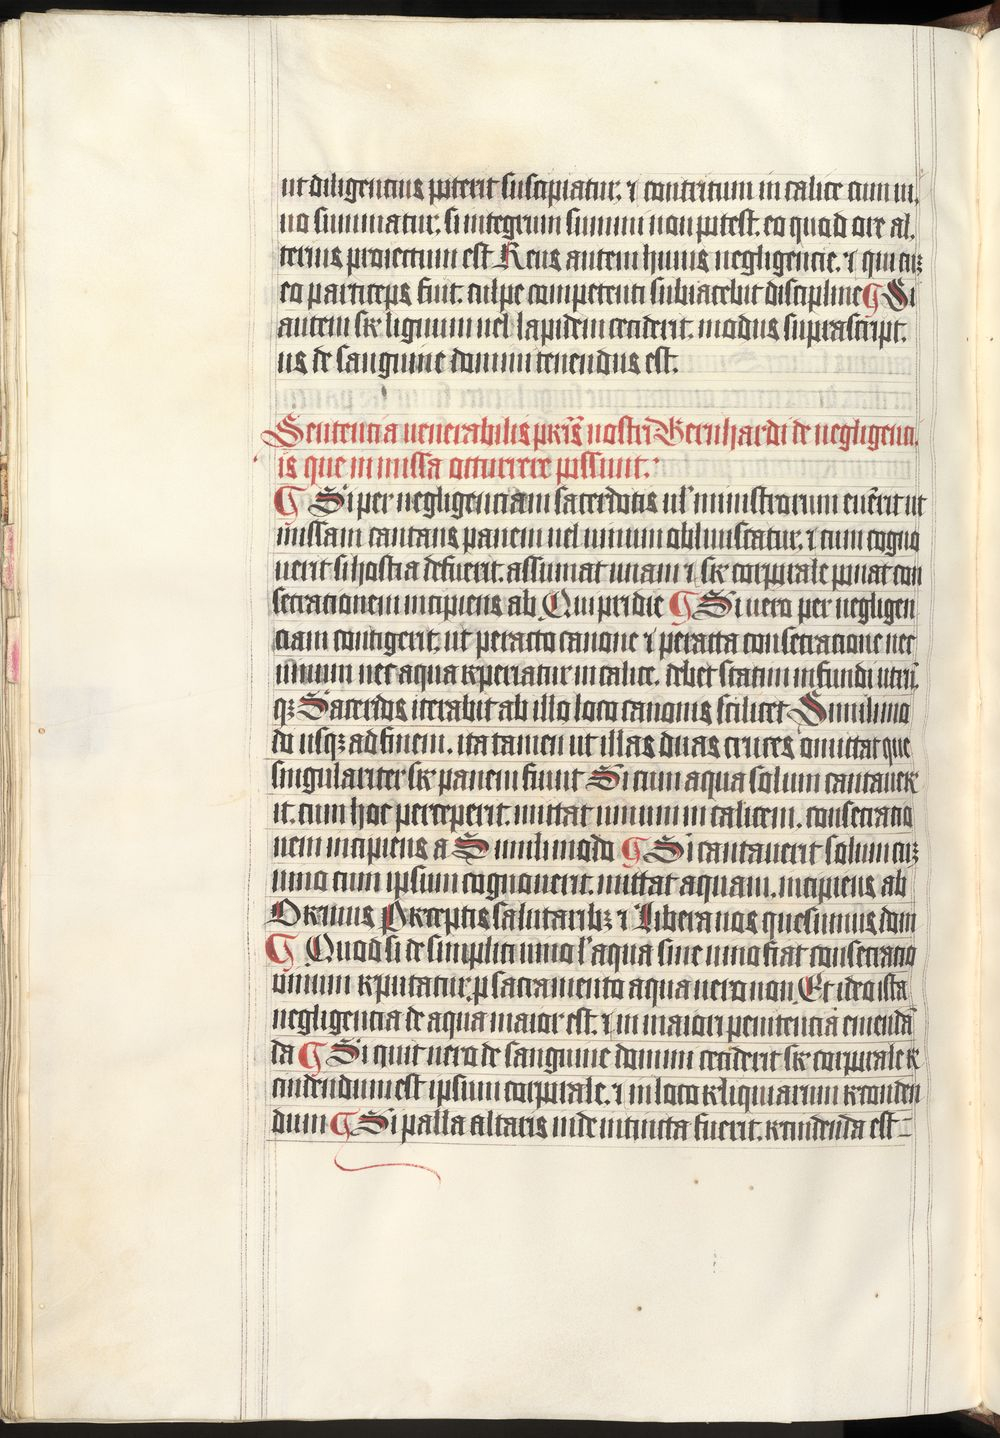 ut diligencius poterit suscipiatur. ⁊ contritum in calice cum ui,
no summatur. si integrum summi non potest. eo quod ore al,
terius proiectum est Reus autem huius negligencie. ⁊ qui cuꝫ
eo particeps fuit. culpe competenti subiacebit discipline ¶ Si
autem sr̄ lignum uel lapidem ceciderit. modus suprascript,
us de sanguine domini tenendus est.
Sentencia uenerabilis pr̄is nostri Bernhardi de negligenci,
is que in missa occurrere possunt.
¶ Si per negligenciam sacerdotis ul' ministrorum euēit ut
missam cantans panem uel uinum obliuiscatur. ⁊ cum cogno
uerit si hostia defuerit. assumat unam ⁊ sr̄ corporale ponat con
secrationem incipiens ab Qui pridie ¶ Si uero per negligen
ciam contigerit. ut peracto canone ⁊ peracta consecratione nec
uinum nec aqua reperiatur in calice. debet statim infundi utrū,
qꝫ Sacerdos iterabit ab illo loco canonis scilicet Simili mo
do usqꝫ ad finem. ita tamen ut illas duas cruces omittat que
singulariter sr̄ panem fiunt Si cum aqua solum cantauer
it. cum hoc perceperit. mittat uinum in calicem. consecratio
nem incipiens a Simili modo ¶ Si cantauerit solum cuꝫ
uino cum ipsum cognouerit. mittat aquam. incipiens ab
Oremus Preceptis salutaribꝫ ⁊ Libera nos quesumus dom
¶ Quod si de simplici uino l' aqua sine uino fiat consecratio
uinum reputatur p sacramento aqua uero non Et ideo ista
negligencia de aqua maior est. ⁊ in maiori penitencia emendā
da ¶ Si quit uero de sanguine domini ceciderit sr̄ corporale re
cindendum est ipsum corporale. ⁊ in loco reliquiarum reconden
dum ¶ Si palla altaris inde intincta fuerit. recindenda est